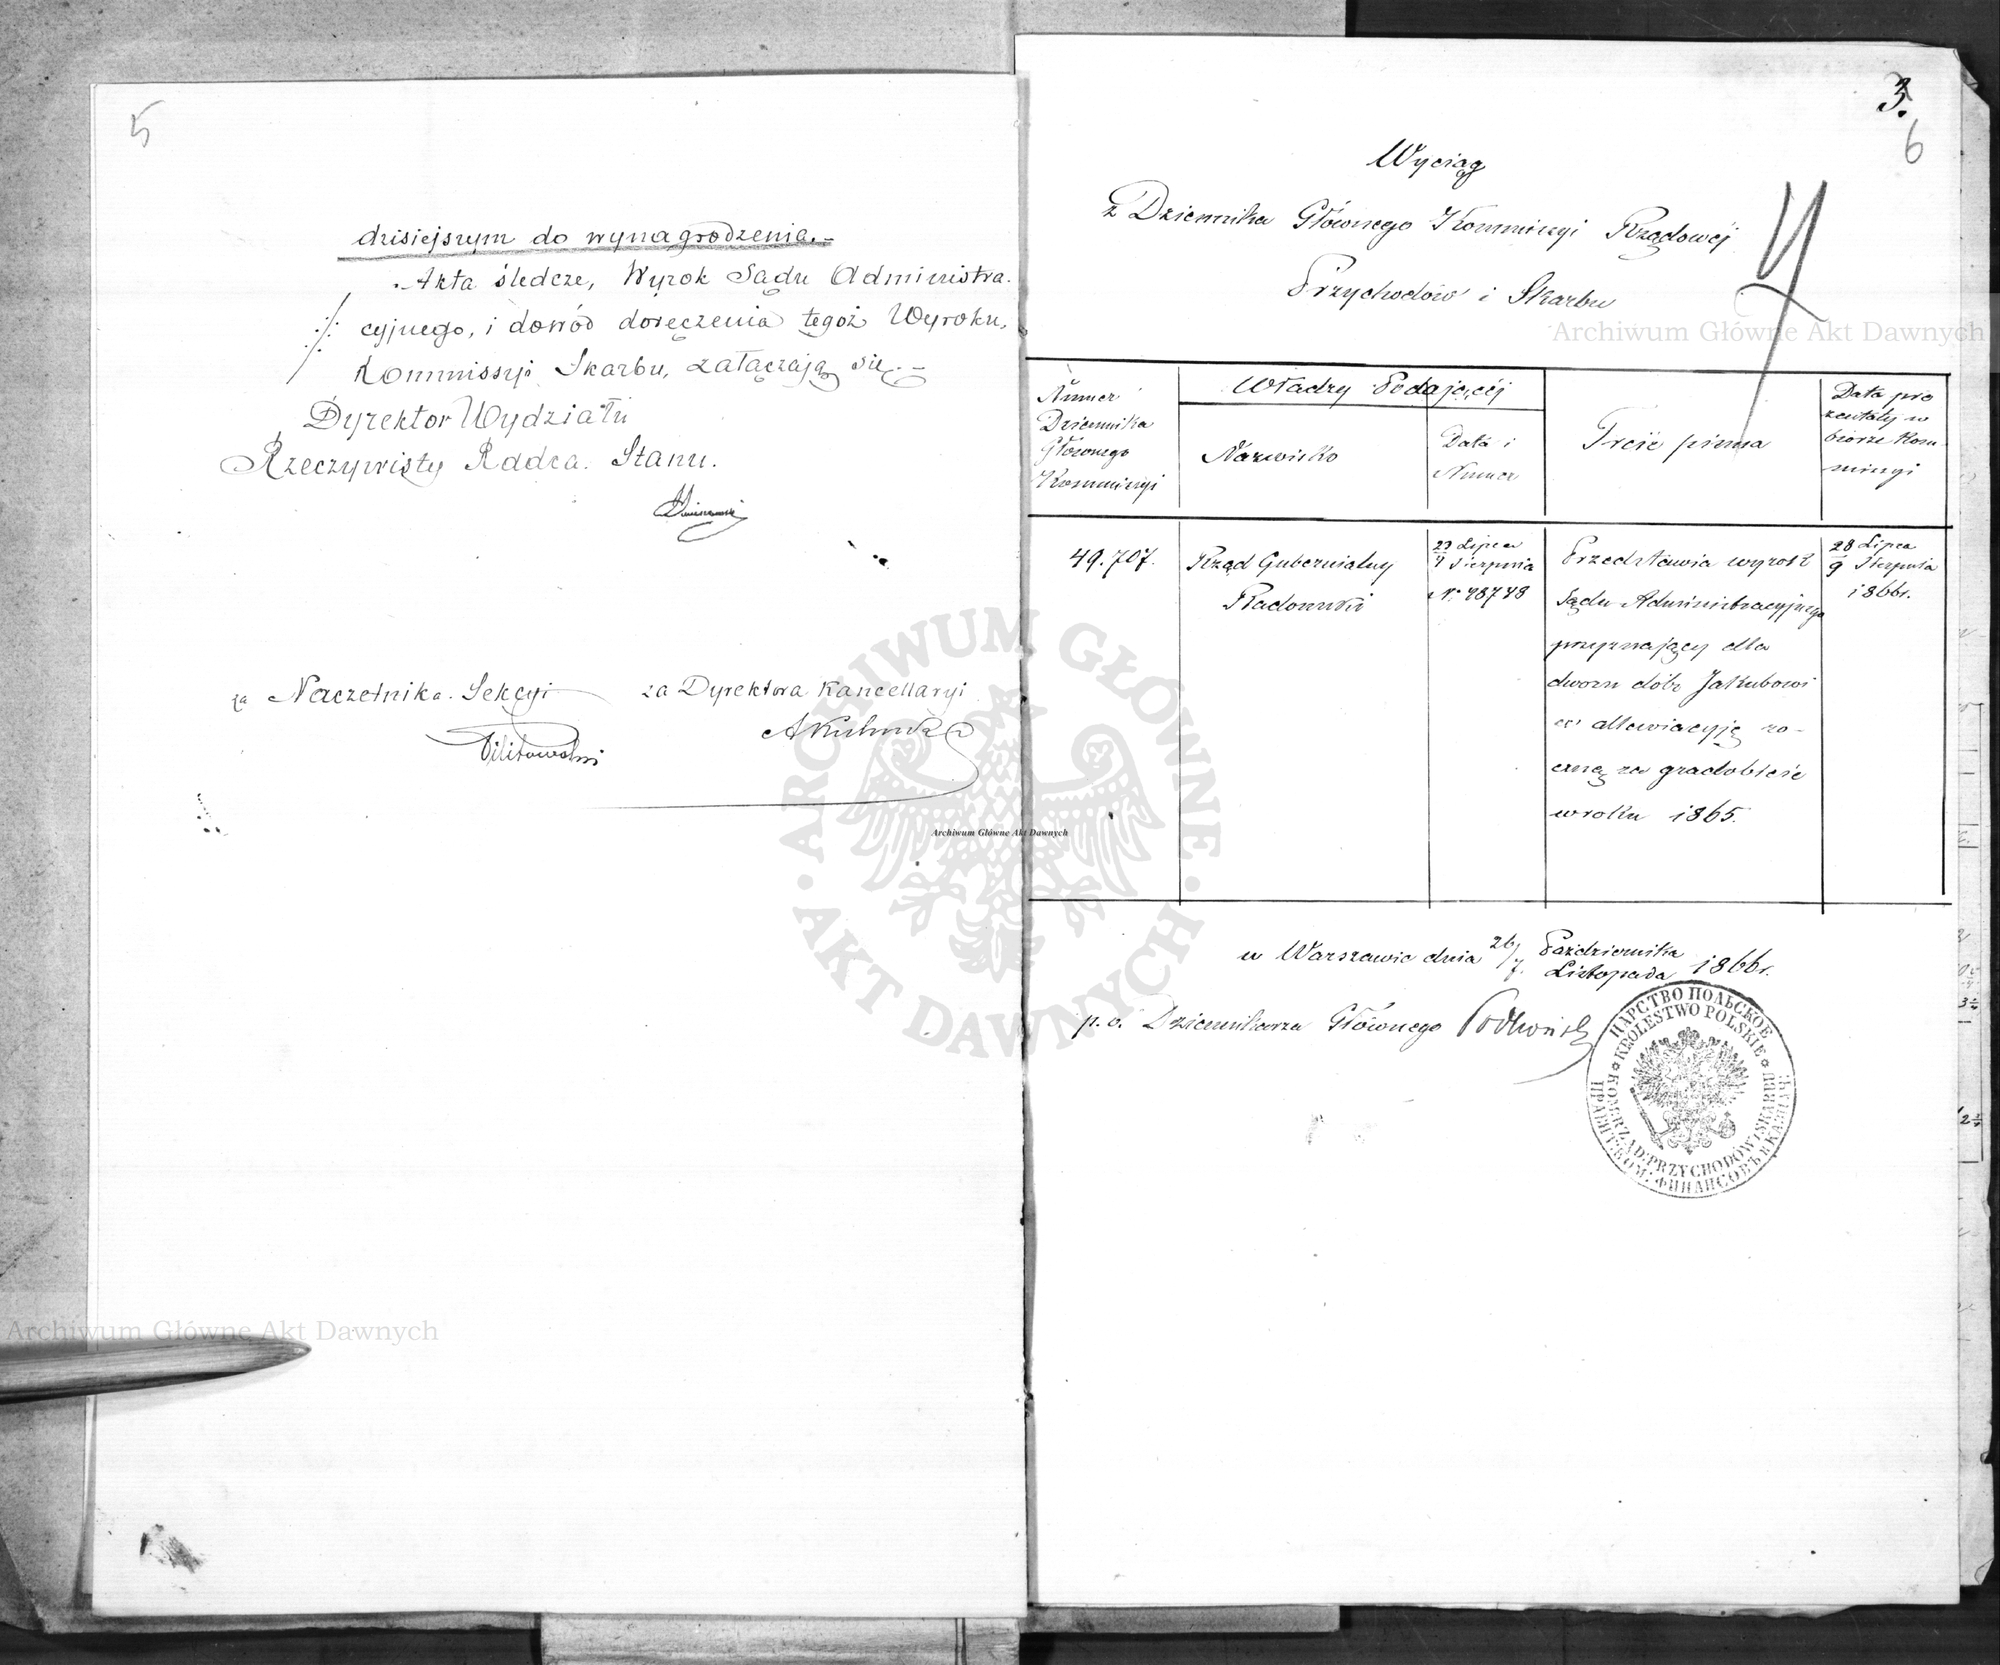 5
dzisiejszym do wynagrodzenia.–
Akta śledcze, Wyrok Sądu Administra-
cyjnego, i dowód doręczenia tegoż Wyroku,
Kommissyi Skarbu, załączają się.–
Dyrektor Wydziału
Rzeczywisty Radca Stanu.
za Naczelnika Sekcyi
za Dyrektora Kancellaryi
3.
6
Wyciąg
z Dziennika Głównego Kommissyi Rządowéj
Przychodów i Skarbu
Numer
Dziennika
Głównego
Kommissyi
Władzy Podającéj
Nazwisko
Data i
Numer
Treść pisma
Data pre
zentaty w
biórze Kom-
missyi
49.707.
Rząd Gubernialny
Radomski
23 Lipca
4 Sierpnia
N. 48748
Przedstawia wyrok
Sądu Administracyjnego
przyznający dla
dworu dóbr Jakubowi
ce allewiacyję ro-
czną za gradobicie
w roku 1865.
28 Lipca
9 Sierpnia
1866r.
w Warszawie dnia 26/7. Października
Listopada 1866r.
p. o. Dziennikarza Głównego
ЦАРСТВО ПОЛЬСКОЕ
KRÓLESTWO POLSKIE
KOM: RZĄD: PRZYCHODÓW I SKARBU
ПРАВИТ: КОМ: ФИНАНСОВЪ И КАЗНАЧ:
Archiwum Główne Akt Dawnych
ARCHIWUM GŁÓWNE
AKT DAWNYCH
Archiwum Główne Akt Dawnych
Archiwum Główne Akt Dawnych